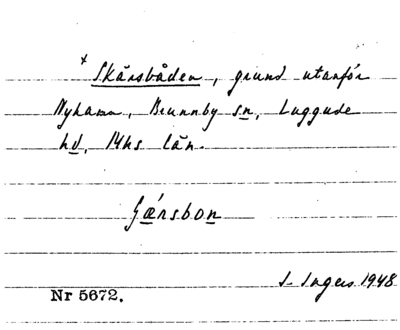 x Skärsbåden, grund utanför
Nyhamn, Brunnby sn, Luggude
hd, Mhs län.
Gǽrsbon
S. Ingers 1948
Nr 5672.